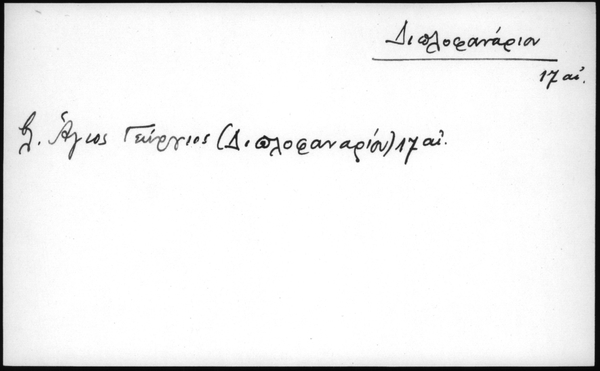 Διπλοφανάριον
17 αἰ.
βλ. Ἅγιος Γεώργιος (Διπλοφαναρίου) 17 αἰ.